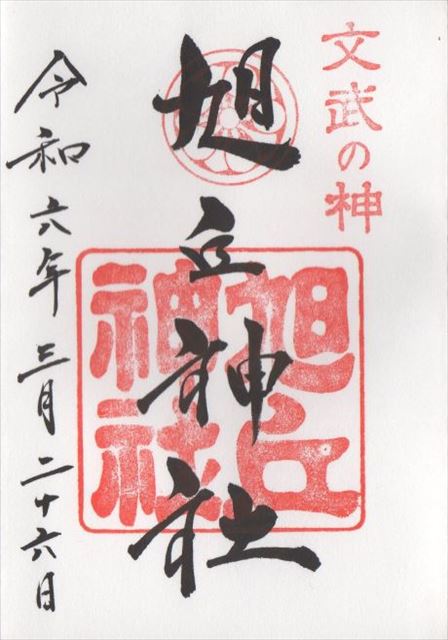 文武の神
旭丘神社
旭丘
神社
令和六年三月二十六日